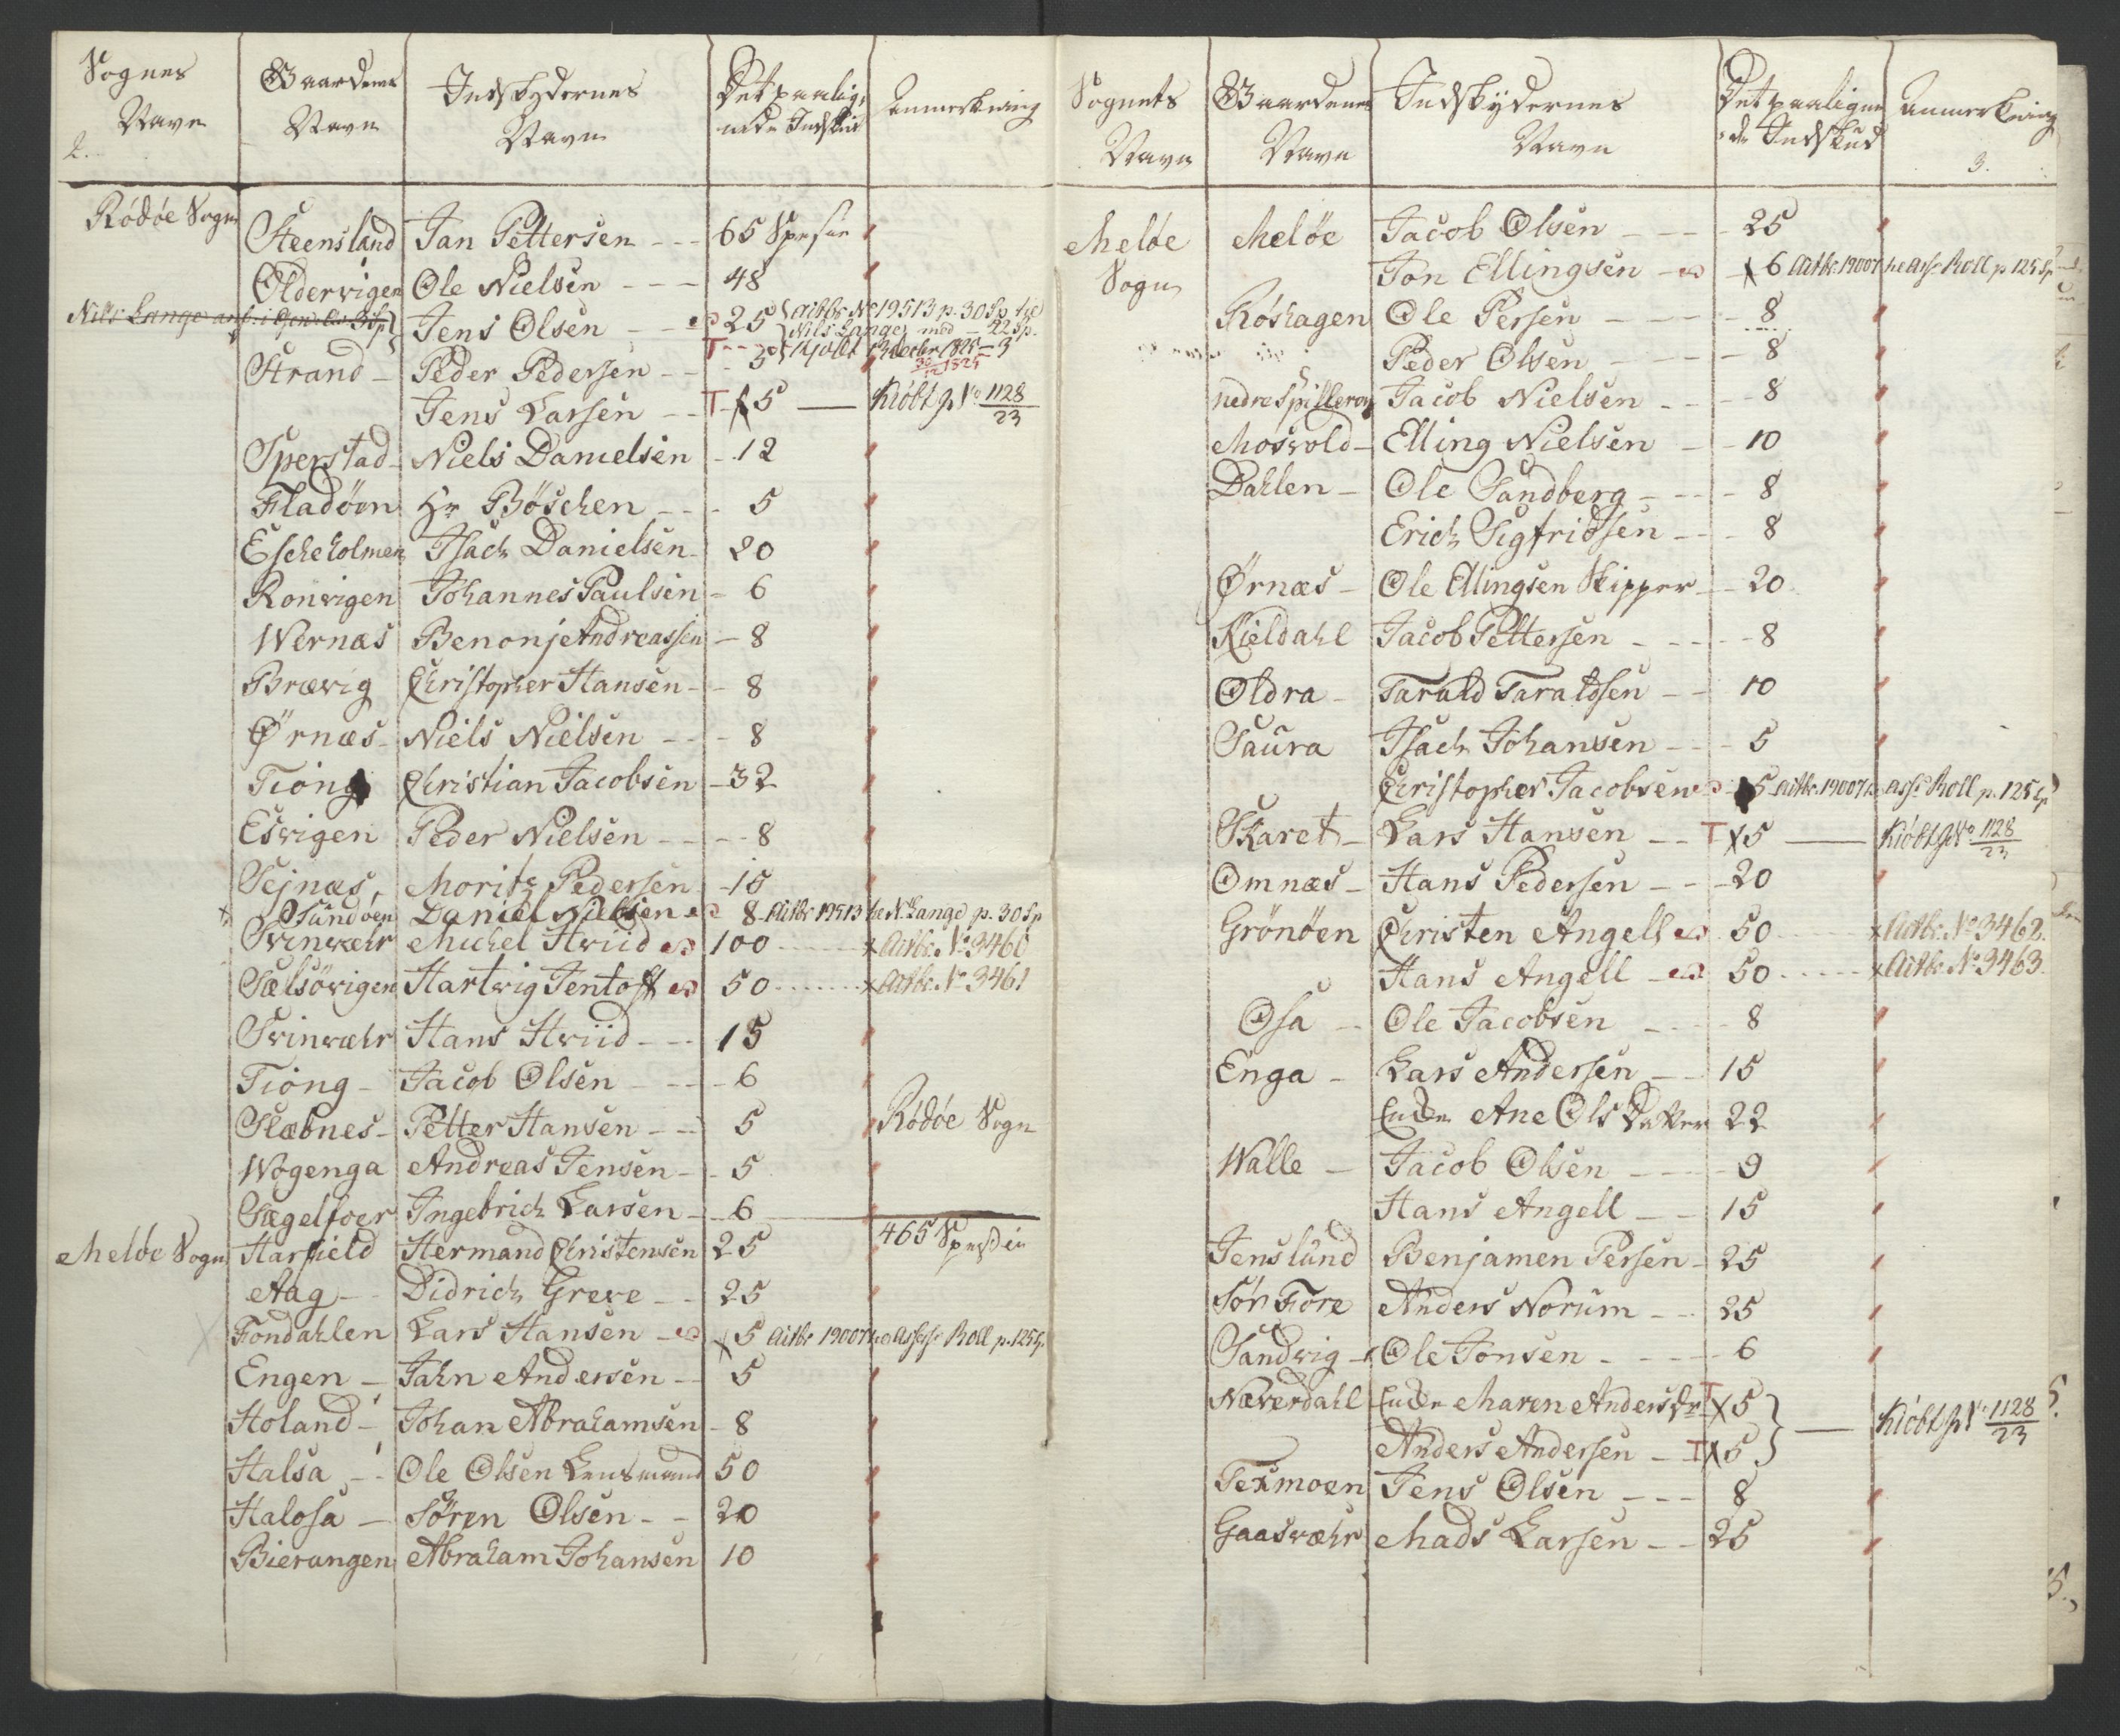 Sognes Navn | Gaardens Navn | Indskydernes Navn | Det paalignede Indskud | Anmerkning
2.
Rödöe Sogn | Steensland | Jan Pettersen | 65 Spesie
Oldervigen | Ole Nielsen | 48
Nils Lange
Jens Olsen | 25 | Aitbr No 19513 p. 30 Sp til
Nils Lange med - 22 Sp.
3 Decbr 1825 - 3
Strand | Peder Pedersen | 5 | 30/12 1825
Jens Larsen | T 5 | Kiöbt p No 1128/23
Sperstad | Niels Danielsen | 12
Fladöen | Hr Böschen | 5
Escheholmen | Isach Danielsen | 20
Ronvigen | Johannes Paulsen | 6
Wernæs | Benonj Andreassen | 8
Brævig | Christopher Hansen | 8
Ørnæs | Niels Nielsen | 8
Tiong | Christian Jacobsen | 32
Esvigen | Peder Nielsen | 8
Sejnæs | Moritz Pedersen | 15
Sundöen | Daniel Nielsen | 8 | Aitbr 19513 til N. Lange p. 30 Sp
Svinvæhr | Michel Hviid | 100 | x Aitbr. No 3460
Sælsövigen | Hartvig Jentoft | 50 | x Aitbr. No 3461
Svinvæhr | Hans Hviid | 15
Tiong | Jacob Olsen | 6
Slæbnes | Petter Hansen | 5 | Rödöe Sogn
Wogenga | Andreas Jensen | 5
Sægelfoer | Ingebrich Larsen | 6
465 Spesien
Melöe Sogn | Harfield | Hermand Christensen | 25
Aag | Didrich Greve | 25
Fondahlen | Lars Hansen | x 5 | Aitbr 19007 til Assess Roll p. 125 Sp.
Engen | Jahn Andersen | 5
Holand | Johan Abrahamsen | 8
Halsa | Ole Olsen Lensmand | 50
Halosa | Sören Olsen | 20
Bierangen | Abraham Johansen | 10
Sognets Navn | Gaardenes Navn | Indskydernes Navn | Det paalignede Indskud | Anmerkning
3.
Melöe Sogn | Melöe | Jacob Olsen | 25
Jon Ellingsen | x 6 | Aitbr. 19007 til Ass. Roll p 125 Sp
Röshagen | Ole Persen | 8
Peder Olsen | 8
nedre Spilleren | Jacob Nielsen | 8
Mosvold | Elling Nielsen | 10
Dahlen | Ole Sandberg | 8
Erich Sigfridsen | 8
Ørnæs | Ole Ellingsen Skipper | 20
Kieldahl | Jacob Pettersen | 8
Oldra | Tarald Taraldsen | 10
Saura | Isach Johansen | 5
Christopher Jacobsen | 5 | Aitbr. 19007 til Ass. Roll p. 125 Sp
Skaret | Lars Hansen | T x 5 | Kiöbt p No 1128/23
Omnæs | Hans Pedersen | 20
Grönöen | Christen Angell | 50 | x Aitbr. No 3462.
Hans Angell | 50 | x Aitbr. No 3463.
Osa | Ole Jacobsen | 8
Enga | Lars Andersen | 15
Encken Ane Ols Datter | 22
Walle | Jacob Olsen | 9
Hans Angell | 15
Jenslund | Benjamen Persen | 25
Sör Fore | Anders Norum | 25
Sandvig | Ole Jonsen | 6
Næverdahl | Encken Maren Andersdr | T x 5
Anders Andersen | T x 5 | Kiöbt p No 1128/23
Texmoen | Jens Olsen | 8
Gaasvæhr | Mads Larsen | 25